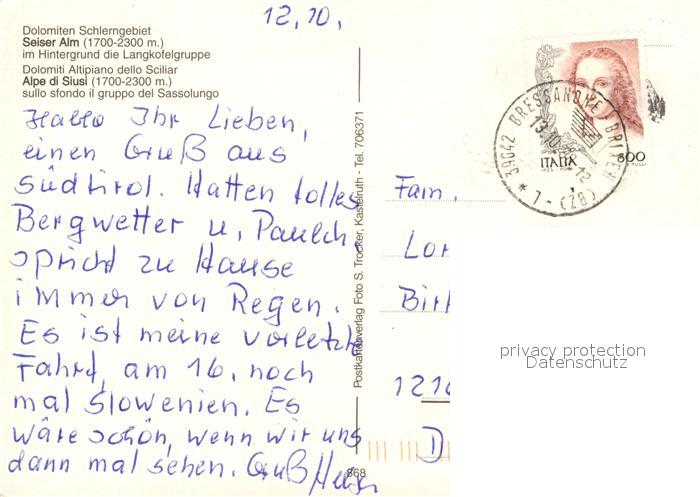 12.10.
Dolomiten Schlerngebiet
Seiser Alm (1700-2300 m.)
im Hintergrund die Langkofelgruppe
Dolomiti Altipiano dello Sciliar
Alpe di Siusi (1700-2300 m.)
sullo sfondo il gruppo del Sassolungo
Hallo Ihr Lieben,
einen Gruß aus
Südtirol. Hatten tolles
Bergwetter u.
spricht zu Hause
immer von Regen.
Es ist meine vorletzte
Fahrt, am 16. noch
mal Slowenien. Es
wäre schön, wenn wir uns
dann mal sehen. Gruß
Postkartenverlag Foto S. Trocker, Kastelruth - Tel. 706371
868
39042 BRESSANONE - BRIXEN
13.10
12
* L - (BZ)
ITALIA
800
Fam.
Lor
Birk
1210
D
privacy protection
Datenschutz